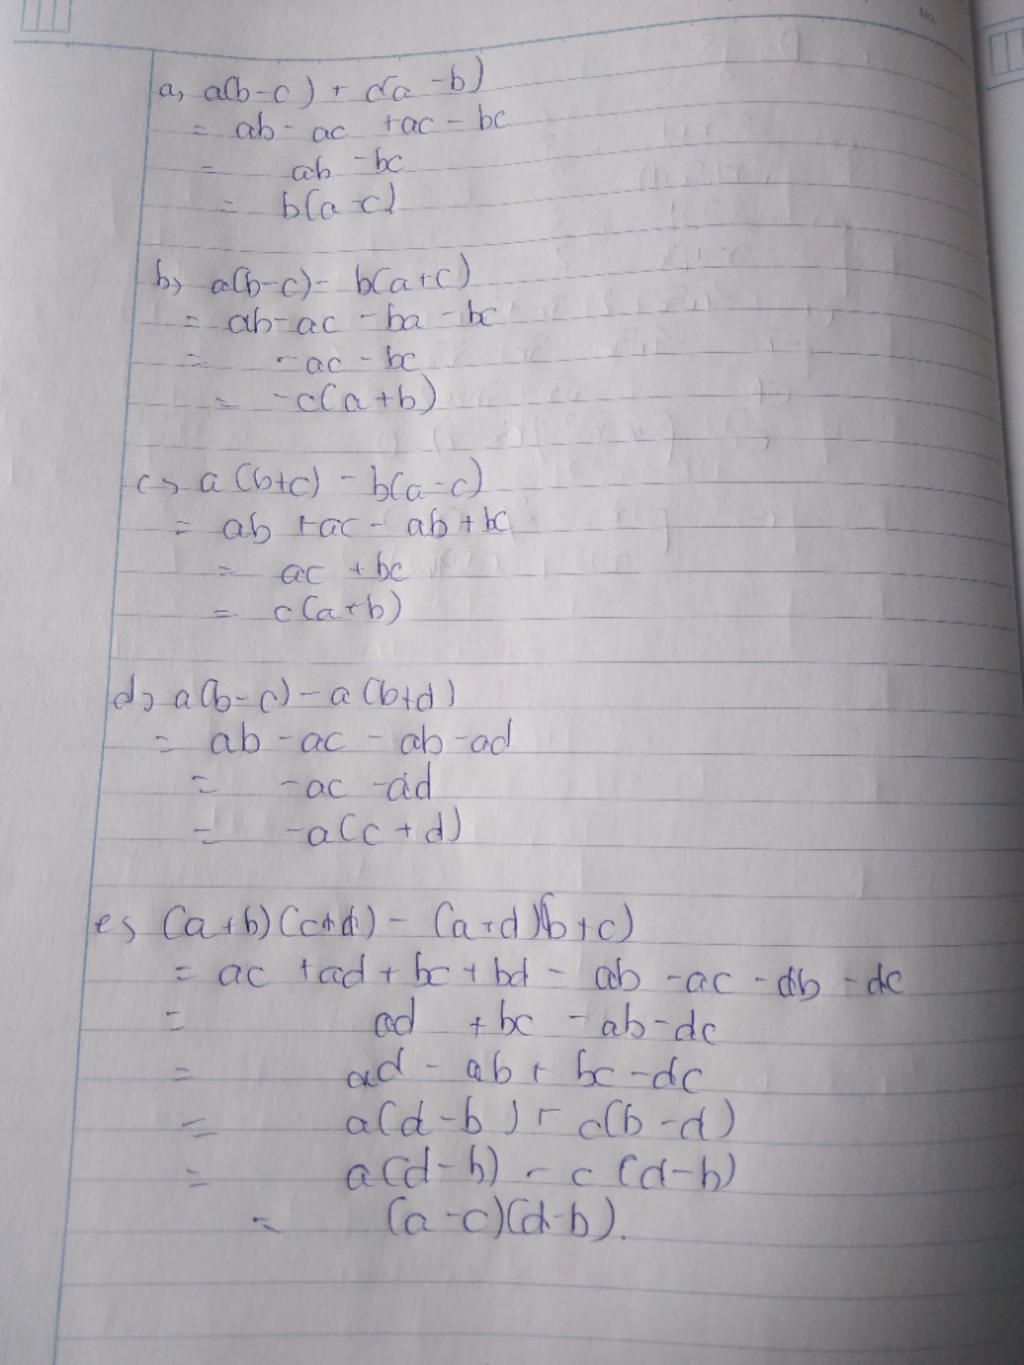 No.
a, a(b-c) + c(a-b)
= ab - ac + ac - bc
= ab - bc
= b(a-c)
b, a(b-c) - b(a+c)
= ab - ac - ba - bc
= -ac - bc
= -c(a+b)
c, a(b+c) - b(a-c)
= ab + ac - ab + bc
= ac + bc
= c(a+b)
d, a(b-c) - a(b+d)
= ab - ac - ab - ad
= -ac - ad
= -a(c+d)
e, (a+b)(c+d) - (a+d)(b+c)
= ac + ad + bc + bd - ab - ac - db - dc
= ad + bc - ab - dc
= ad - ab + bc - dc
= a(d-b) + c(b-d)
= a(d-b) - c(d-b)
= (a-c)(d-b).